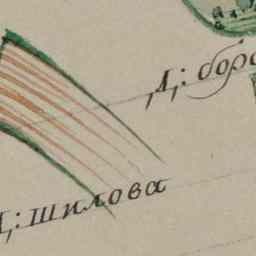 Д: боро
Д: шилова